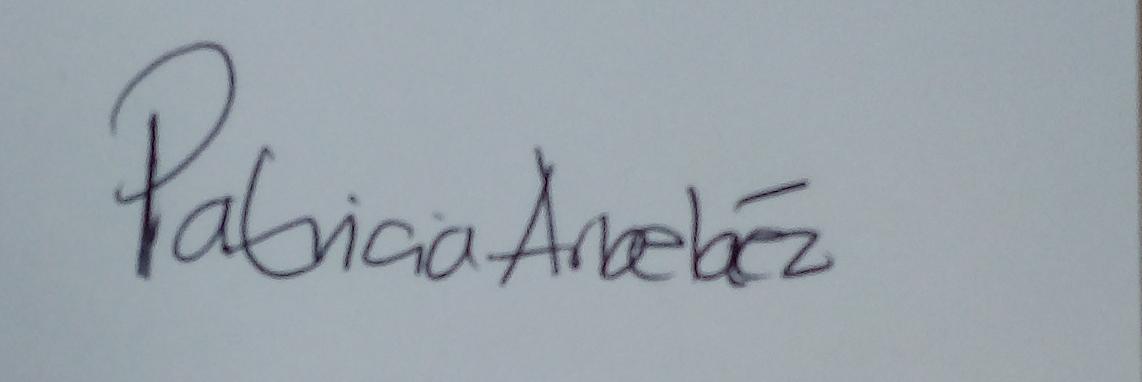 Patricia Arbeláez